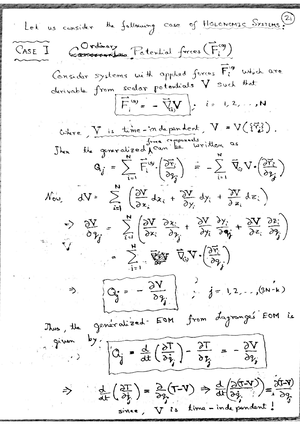 (21)
Let us consider the following case of HOLONOMIC SYSTEMS:
CASE I Ordinary Potential forces (F_i^(app))
Consider systems with applied forces F_i^(app) which are
derivable from scalar potentials V such that
F_i^(app) = - ∇_(i) V ; i = 1, 2, ..., N
where, V is time-independent, V = V({r_i}).
Then the generalized force components can be written as
Q_j = Σ_{i=1}^{N} F_i^(app) · (∂r_i/∂q_j) = - Σ_{i=1}^{N} ∇_(i) V · (∂r_i/∂q_j)
Now, dV = Σ_{i=1}^{N} (∂V/∂x_i dx_i + ∂V/∂y_i dy_i + ∂V/∂z_i dz_i)
⇒ ∂V/∂q_j = Σ_{i=1}^{N} (∂V/∂x_i ∂x_i/∂q_j + ∂V/∂y_i ∂y_i/∂q_j + ∂V/∂z_i ∂z_i/∂q_j)
= Σ_{i=1}^{N} ∇_(i) V · (∂r_i/∂q_j)
⇒ Q_j = - ∂V/∂q_j ; j = 1, 2, ..., (3N-k)
Thus, the generalized EOM from Lagranges' EOM is
given by:
Q_j = d/dt (∂T/∂q̇_j) - ∂T/∂q_j = - ∂V/∂q_j
⇒ d/dt (∂T/∂q̇_j) = ∂/∂q_j (T-V) ⇒ d/dt (∂(T-V)/∂q̇_j) = ∂(T-V)/∂q_j
since, V is time-independent!